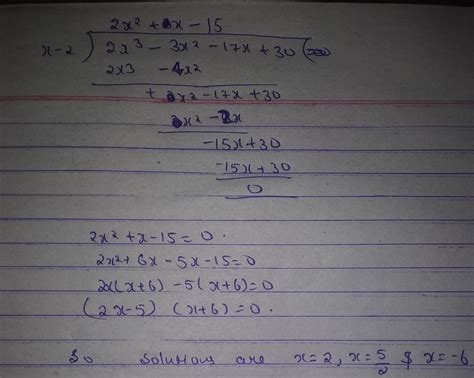 2x² + x - 15
x-2 ) 2x³ - 3x² - 17x + 30 (
2x3 - 4x²
+ x² - 17x + 30
x² - 2x
-15x + 30
-15x + 30
0
2x² + x - 15 = 0 .
2x² + 6x - 5x - 15 = 0
2x(x+6) - 5(x+6) = 0
(2x-5) (x+6) = 0 .
So solutions are x = 2, x = 5/2 & x = -6